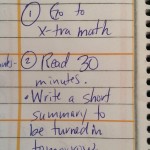 ① Go to
x-tra math
② Read 30
minutes.
• Write a short
summary to
be turned in
tomorrow